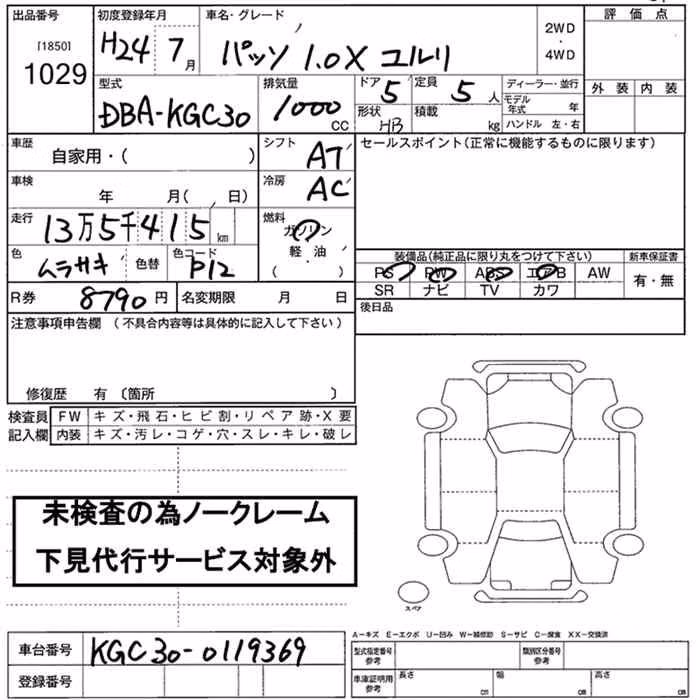 出品番号 初度登録年月 車名・グレード 2WD・4WD 評価点
[1850] 1029 H24 7月 パッソ 1.0X ユルリ 外装 内装
型式 DBA-KGC30 排気量 1000 CC ドア 5 定員 5人 ディーラー・並行
形状 HB 積載 kg モデル年式 年 ハンドル 左・右
車歴 自家用・( ) シフト AT セールスポイント(正常に機能するものに限ります)
車検 年 月( 、 日) 冷房 AC
走行 13万5千415km 燃料 ガソリン 軽・油 ( )
色 ムラサキ 色替 色コード P12 装備品(純正品に限り丸をつけて下さい) 新車保証書
PS PW ABS エアB AW 有・無
SR ナビ TV カワ
R券 8790円 名変期限 月 日 後日品
注意事項申告欄 (不具合内容等は具体的に記入して下さい)
修復歴 有 〔箇所 〕
検査員記入欄 FW キズ・飛石・ヒビ割・リペア跡・X要
内装 キズ・汚レ・コゲ・穴・スレ・キレ・破レ
未検査の為ノークレーム
下見代行サービス対象外
スペア
A-キズ E-エクボ U-凹み W-補修跡 S-サビ C-腐食 XX-交換済
車台番号 KGC30-0119369 型式指定番号 参考 類別区分番号 参考
登録番号 車庫証明用 参考 長さ cm 幅 cm 高さ cm